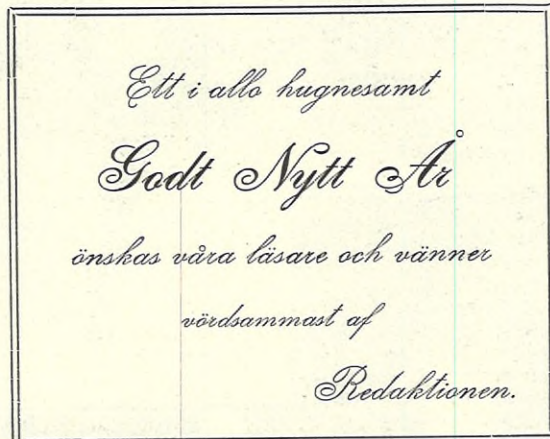 Ett i allo hugnesamt
Godt Nytt År
önskas våra läsare och vänner
vördsammast af
Redaktionen.